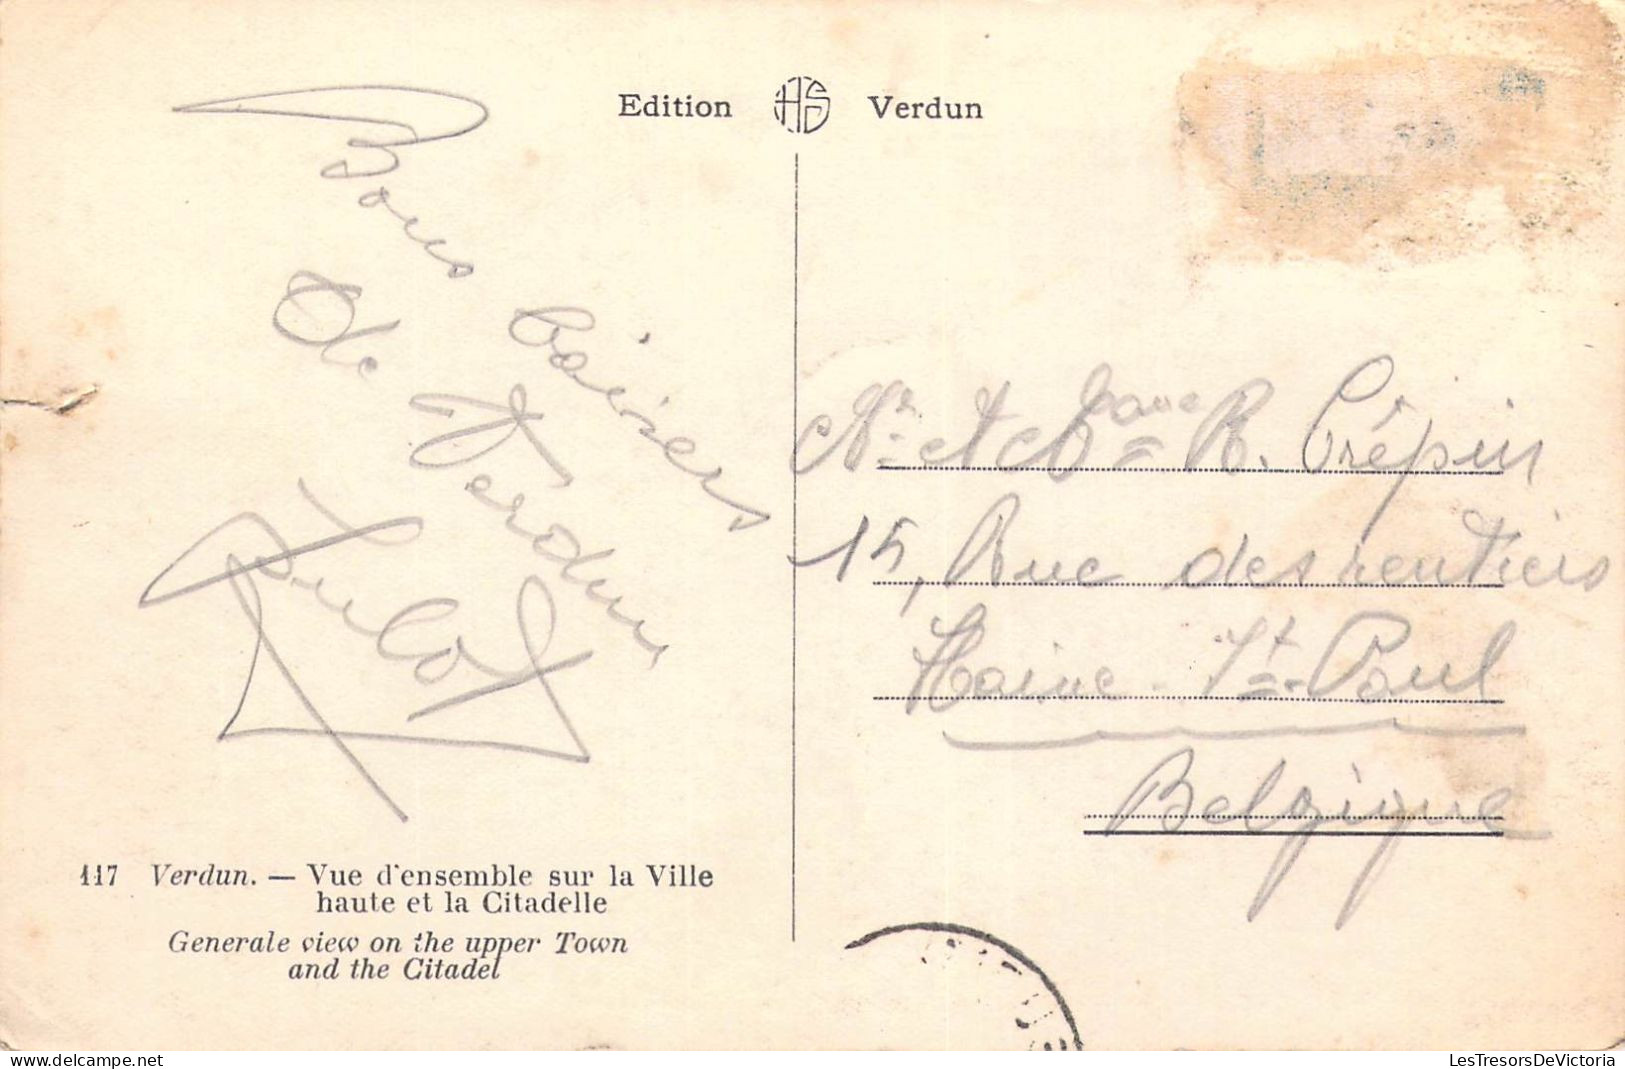 Edition HS Verdun
Bons baisers
de Verdun
Mr. et Mame R. Crépin
15, Rue des rentiers
Haine-St-Paul
Belgique
117 Verdun. — Vue d'ensemble sur la Ville
haute et la Citadelle
Generale view on the upper Town
and the Citadel
delcampe.net
LesTresorsDeVictoria